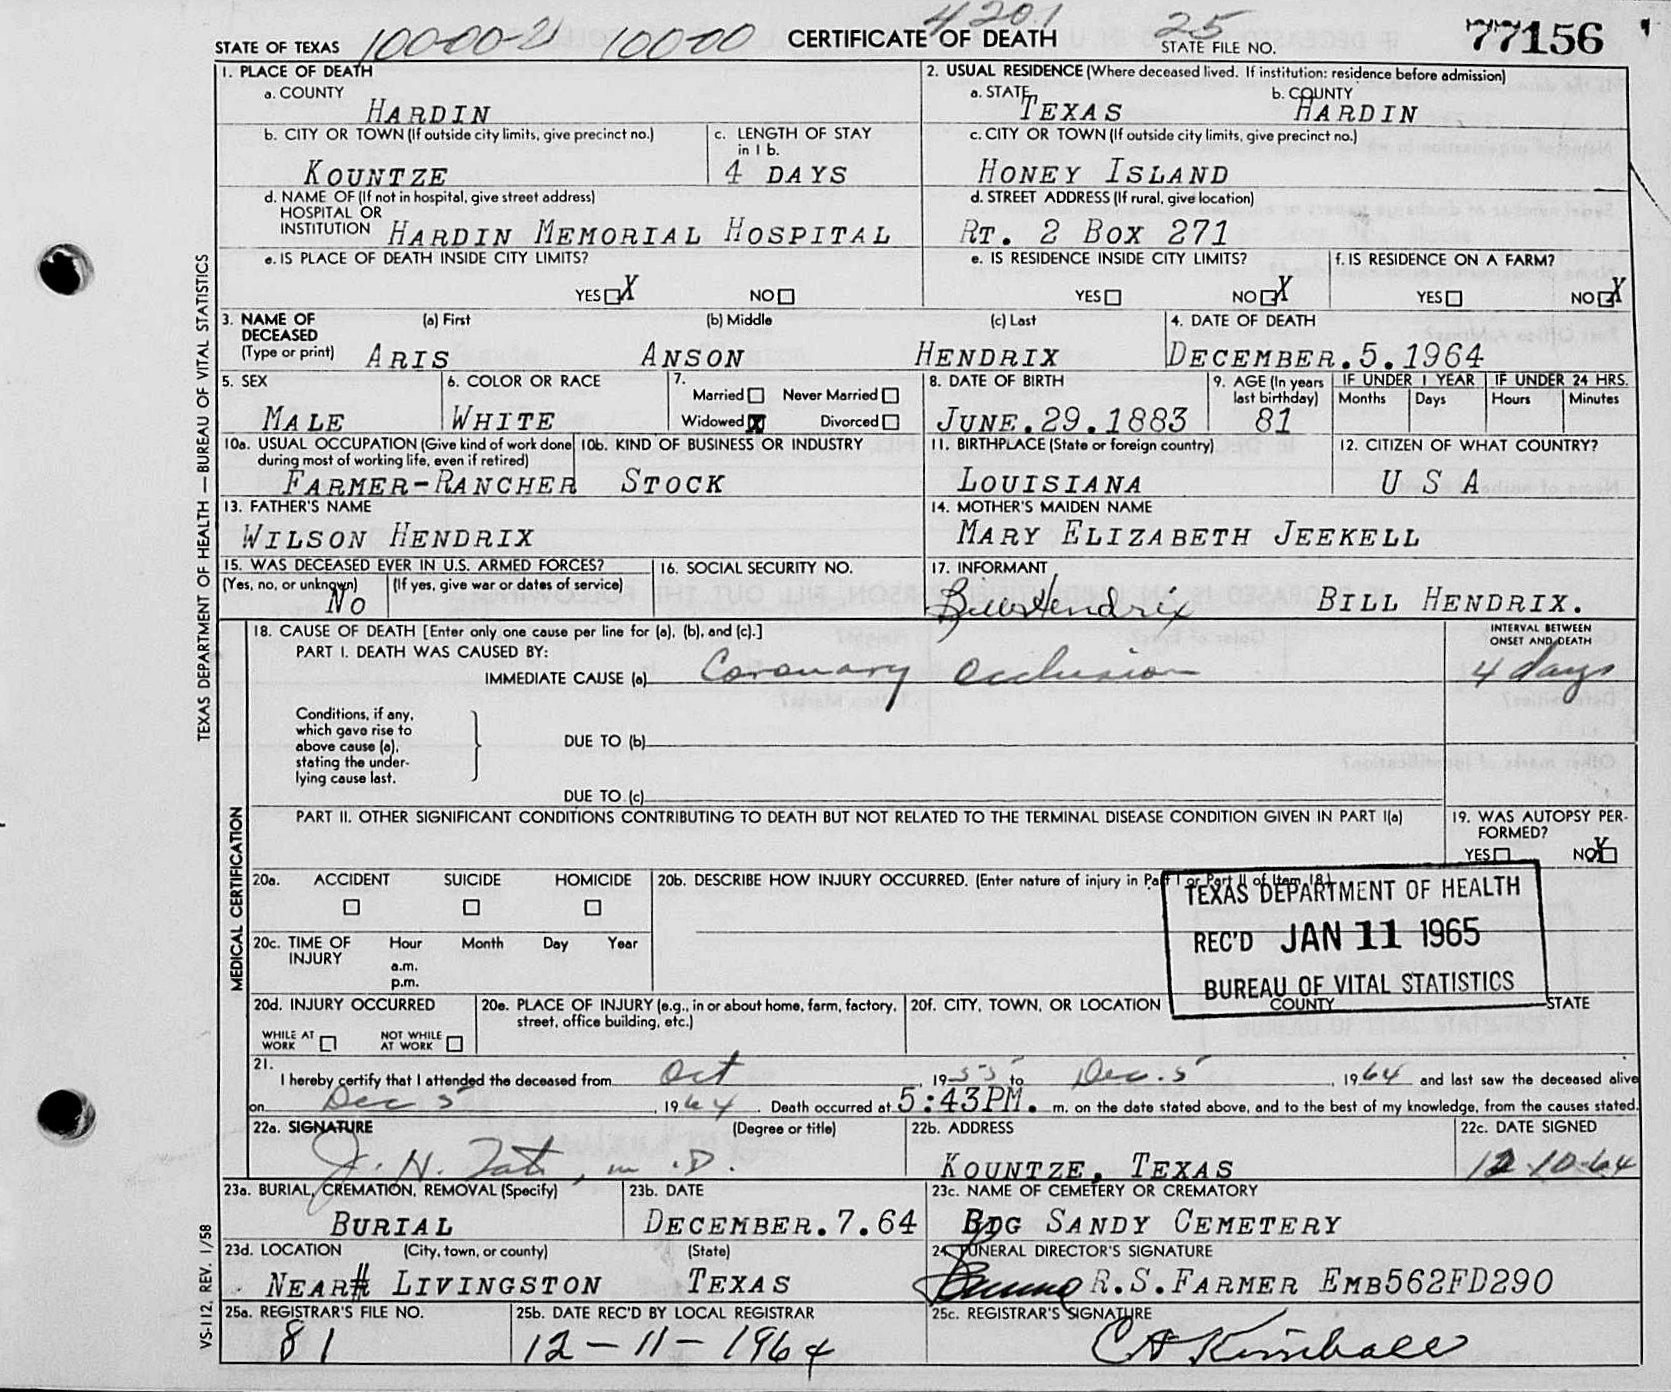 4201
STATE OF TEXAS 10000-21 10000 CERTIFICATE OF DEATH 25 STATE FILE NO. 77156
1. PLACE OF DEATH
a. COUNTY
HARDIN
2. USUAL RESIDENCE (Where deceased lived. If institution: residence before admission)
a. STATE b. COUNTY
TEXAS HARDIN
b. CITY OR TOWN (If outside city limits, give precinct no.)
KOUNTZE
c. LENGTH OF STAY
in 1 b.
4 DAYS
c. CITY OR TOWN (If outside city limits, give precinct no.)
HONEY ISLAND
d. NAME OF (If not in hospital, give street address)
HOSPITAL OR
INSTITUTION HARDIN MEMORIAL HOSPITAL
d. STREET ADDRESS (If rural, give location)
RT. 2 BOX 271
e. IS PLACE OF DEATH INSIDE CITY LIMITS?
YES X NO
e. IS RESIDENCE INSIDE CITY LIMITS?
YES NO X
f. IS RESIDENCE ON A FARM?
YES NO X
3. NAME OF (a) First (b) Middle (c) Last
DECEASED
(Type or print) ARIS ANSON HENDRIX
4. DATE OF DEATH
DECEMBER.5.1964
5. SEX
MALE
6. COLOR OR RACE
WHITE
7.
Married Never Married
Widowed X Divorced
8. DATE OF BIRTH
JUNE.29.1883
9. AGE (In years
last birthday)
81
IF UNDER 1 YEAR
Months Days
IF UNDER 24 HRS.
Hours Minutes
10a. USUAL OCCUPATION (Give kind of work done
during most of working life, even if retired)
FARMER-RANCHER
10b. KIND OF BUSINESS OR INDUSTRY
STOCK
11. BIRTHPLACE (State or foreign country)
LOUISIANA
12. CITIZEN OF WHAT COUNTRY?
U S A
13. FATHER'S NAME
WILSON HENDRIX
14. MOTHER'S MAIDEN NAME
MARY ELIZABETH JEEKELL
15. WAS DECEASED EVER IN U.S. ARMED FORCES?
(Yes, no, or unknown) (If yes, give war or dates of service)
NO
16. SOCIAL SECURITY NO.
17. INFORMANT
Bill Hendrix BILL HENDRIX.
18. CAUSE OF DEATH [Enter only one cause per line for (a), (b), and (c).]
PART I. DEATH WAS CAUSED BY:
IMMEDIATE CAUSE (a) Coronary Occlusion
INTERVAL BETWEEN
ONSET AND DEATH
4 days
Conditions, if any,
which gave rise to
above cause (a),
stating the under-
lying cause last.
DUE TO (b)
DUE TO (c)
PART II. OTHER SIGNIFICANT CONDITIONS CONTRIBUTING TO DEATH BUT NOT RELATED TO THE TERMINAL DISEASE CONDITION GIVEN IN PART I(a)
19. WAS AUTOPSY PER-
FORMED?
YES NO X
20a. ACCIDENT SUICIDE HOMICIDE
20b. DESCRIBE HOW INJURY OCCURRED. (Enter nature of injury in Part I or Part II of Item 18)
TEXAS DEPARTMENT OF HEALTH
REC'D JAN 11 1965
BUREAU OF VITAL STATISTICS
20c. TIME OF Hour Month Day Year
INJURY
a.m.
p.m.
20d. INJURY OCCURRED
WHILE AT WORK NOT WHILE AT WORK
20e. PLACE OF INJURY (e.g., in or about home, farm, factory,
street, office building, etc.)
20f. CITY, TOWN, OR LOCATION COUNTY STATE
21.
I hereby certify that I attended the deceased from Oct, 1955 to Dec. 5, 1964 and last saw the deceased alive
on Dec 5, 1964. Death occurred at 5:43PM. m. on the date stated above, and to the best of my knowledge, from the causes stated.
22a. SIGNATURE (Degree or title)
J. H. Tate, M.D.
22b. ADDRESS
KOUNTZE, TEXAS
22c. DATE SIGNED
12-10-64
23a. BURIAL, CREMATION, REMOVAL (Specify)
BURIAL
23b. DATE
DECEMBER.7.64
23c. NAME OF CEMETERY OR CREMATORY
BIG SANDY CEMETERY
23d. LOCATION (City, town, or county) (State)
NEAR LIVINGSTON TEXAS
24. FUNERAL DIRECTOR'S SIGNATURE
R.S.FARMER EMB562FD290
25a. REGISTRAR'S FILE NO.
81
25b. DATE REC'D BY LOCAL REGISTRAR
12-11-1964
25c. REGISTRAR'S SIGNATURE
C A Kimball
TEXAS DEPARTMENT OF HEALTH — BUREAU OF VITAL STATISTICS
MEDICAL CERTIFICATION
VS-112, REV. 1/58